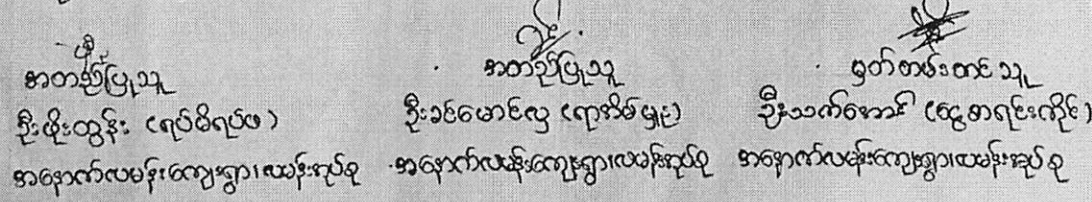 အတည်ပြုသူ
ဦးဖိုးထွန်း (ရပ်မိရပ်ဖ)
အနောက်လမန်းကျေးရွာ၊လမန်းအုပ်စု
အတည်ပြုသူ
ဦးခင်မောင်လှ (ရာအိမ်မှူး)
အနောက်လမန်းကျေးရွာ၊လမန်းအုပ်စု
မှတ်တမ်းတင်သူ
ဦးသက်အောင် (ငွေစာရင်းကိုင်)
အနောက်လမန်းကျေးရွာ၊လမန်းအုပ်စု